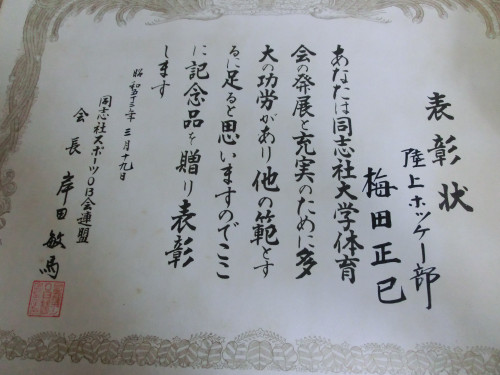 表彰状
陸上ホッケー部
梅田正巳
あなたは同志社大学体育
会の発展と充実のために多
大の功労があり他の範とす
るに足ると思いますのでここ
に記念品を贈り表彰
します
昭和五十三年三月十九日
同志社スポーツOB会連盟
会長 岸田敏馬